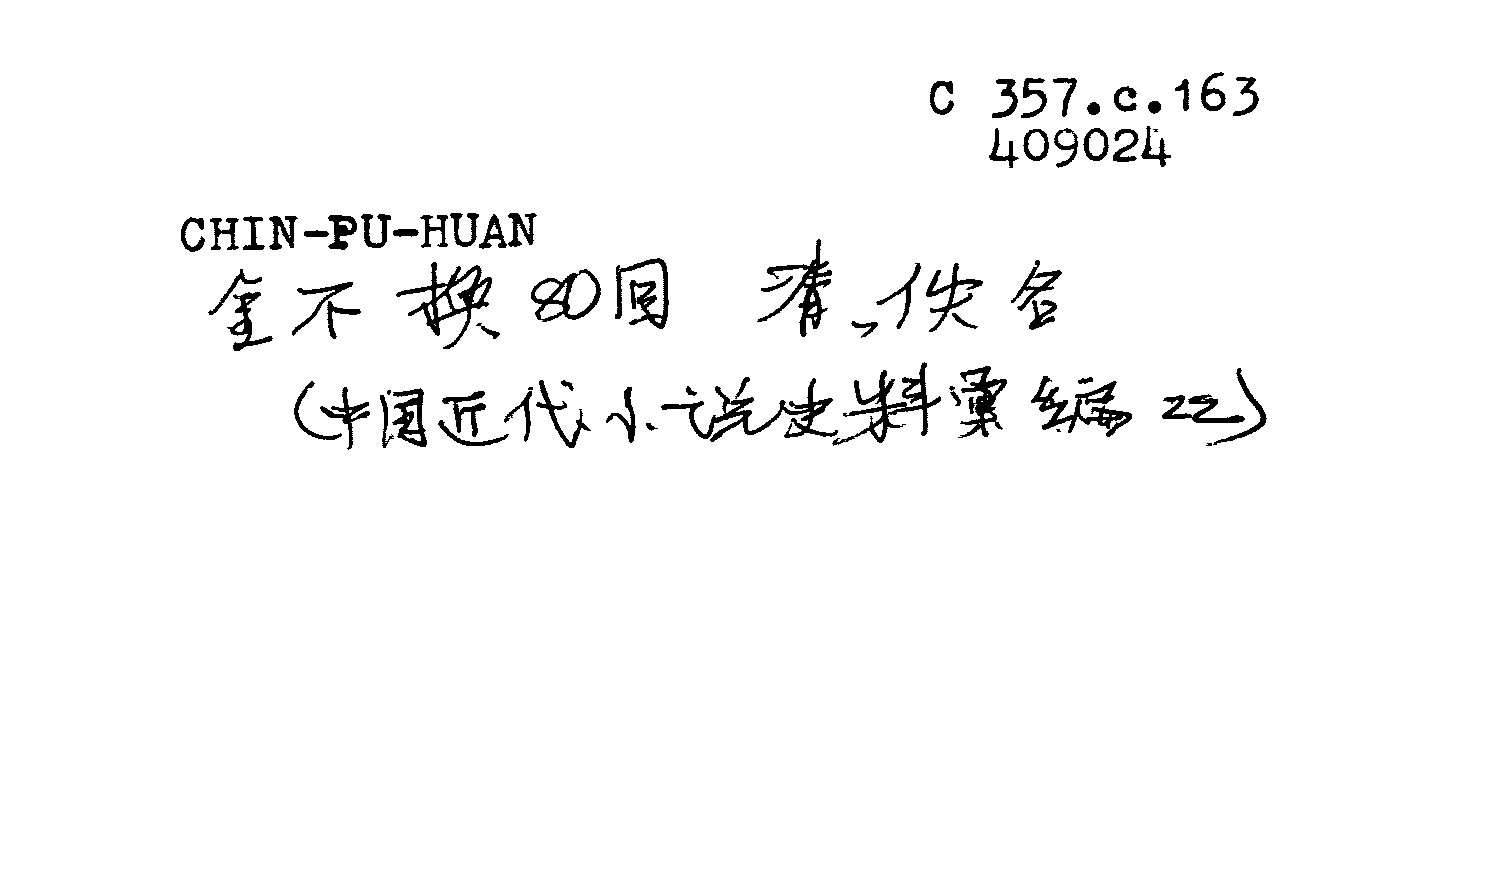 C 357.c.163
409024
CHIN-PU-HUAN
金不换80回 清、佚名
(中国近代小说史料彙编 22)